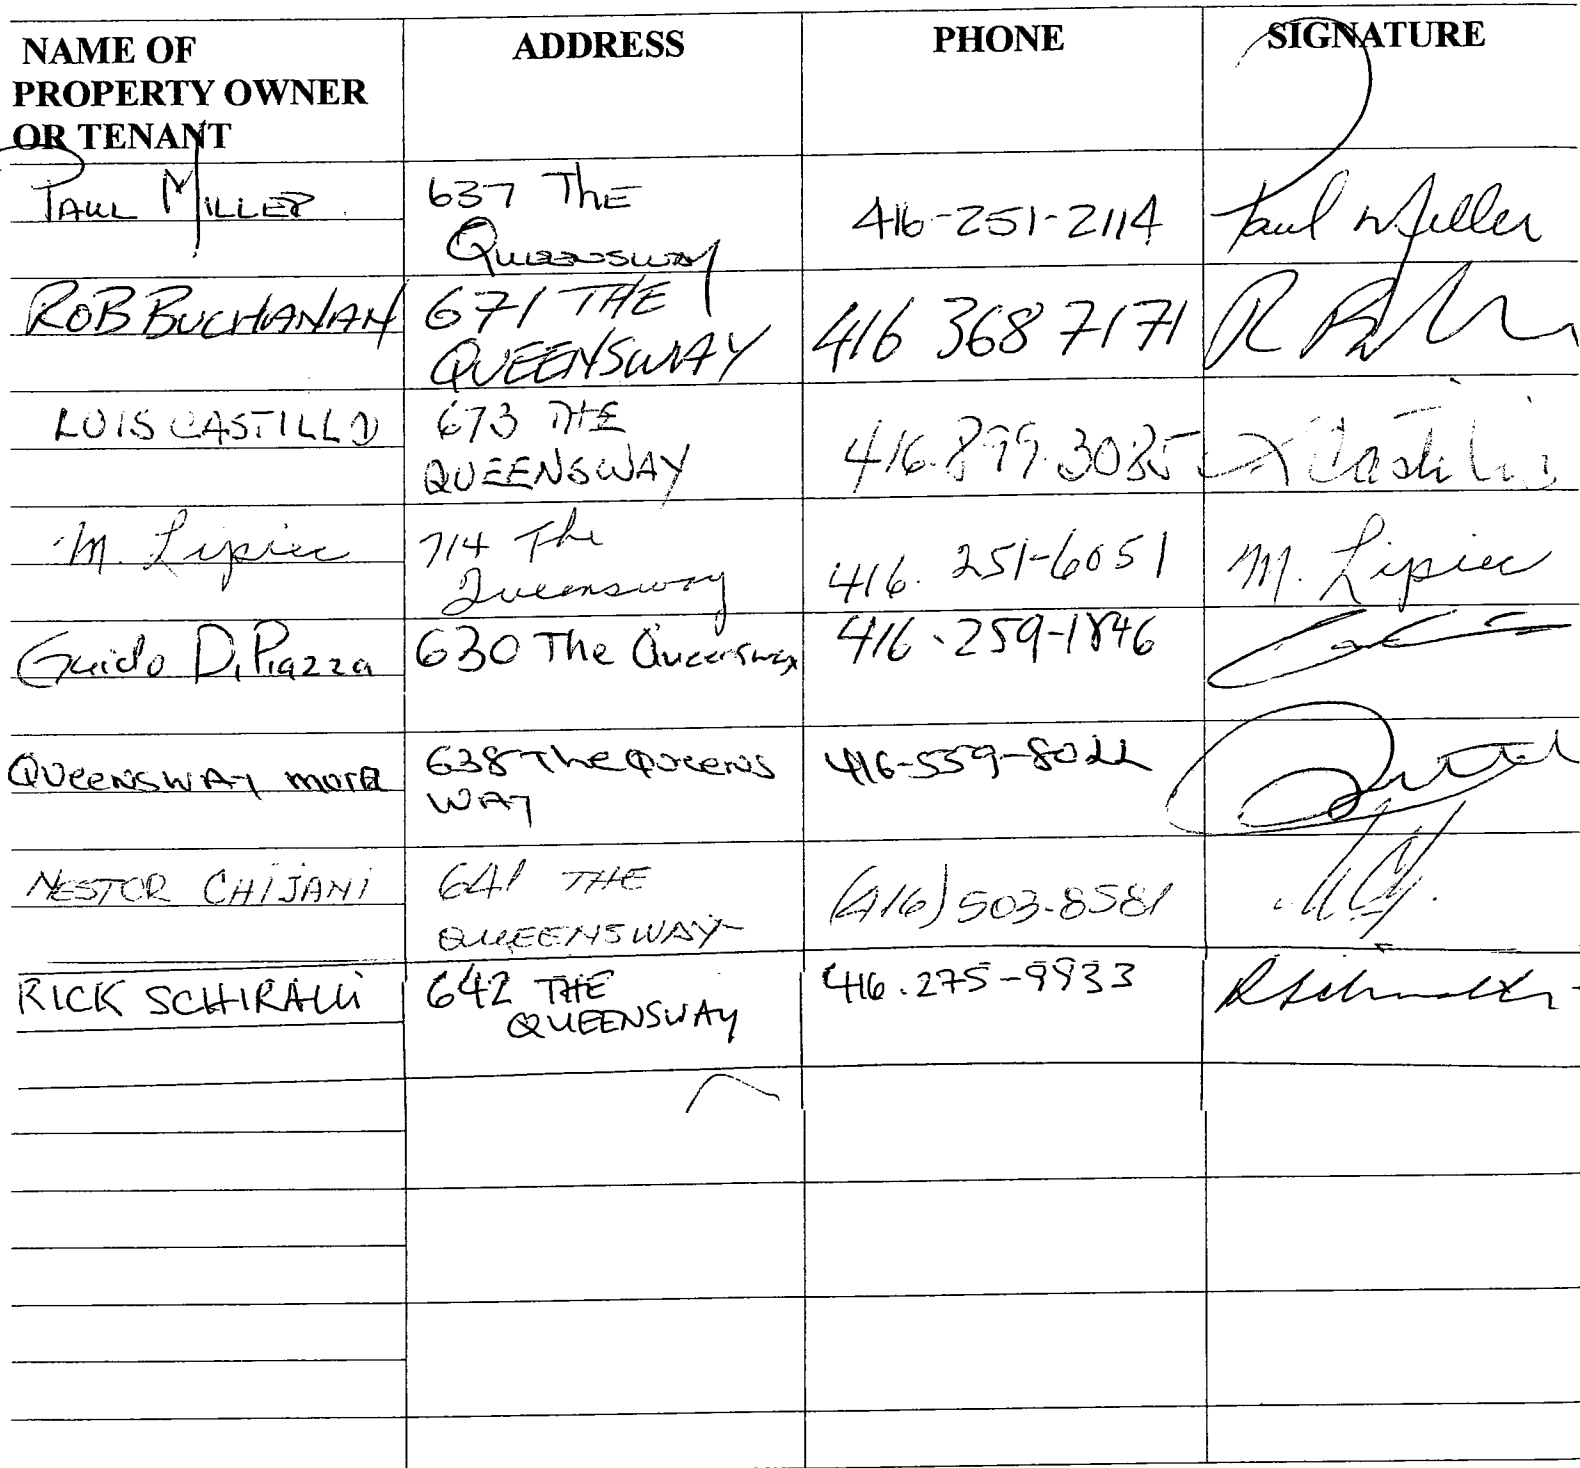 NAME OF
PROPERTY OWNER
OR TENANT
ADDRESS
PHONE
SIGNATURE
PAUL MILLER
637 THE
Queensway
416-251-2114
Paul Miller
ROB BUCHANAN
671 THE
QUEENSWAY
416 368 7171
LUIS CASTILLO
673 THE
QUEENSWAY
416.899.3085
L Castillo
M. Lipiec
714 The
Queensway
416. 251-6051
M. Lipiec
Guido DiPiazza
630 The Queensway
416-259-1846
QUEENSWAY
638 The Queens
WAY
416-559-8022
NESTOR CHIJANI
641 THE
QUEENSWAY
(416) 503-8581
RICK SCHIRALLI
642 THE
QUEENSWAY
416.275-9933